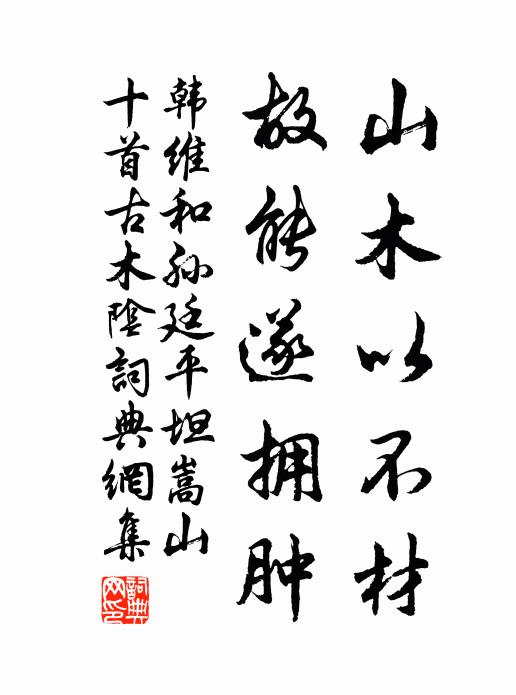 山木以不材
故能遂拥肿
韩维和孙廷平坦嵩山
十首古木陰詞典網集
詞典网印